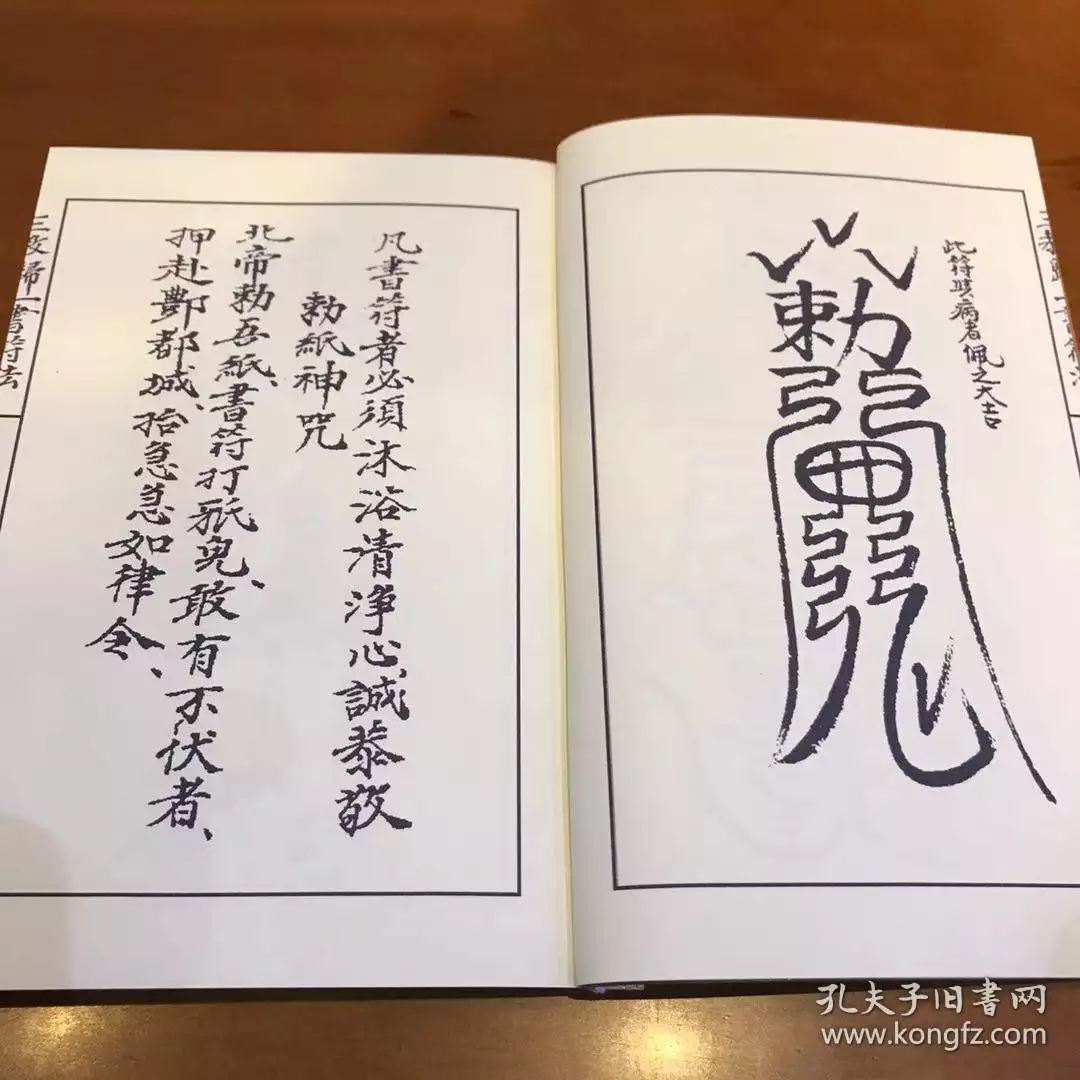 此符 病者佩之大吉
勅
三教歸一書符法
凡書符者必須沐浴清淨心誠恭敬
勅紙神咒
北帝勅吾紙、書符打邪鬼、敢有不伏者、
押赴酆都城、急急如律令、
三教歸一書符法
孔夫子旧書网
www.kongfz.com